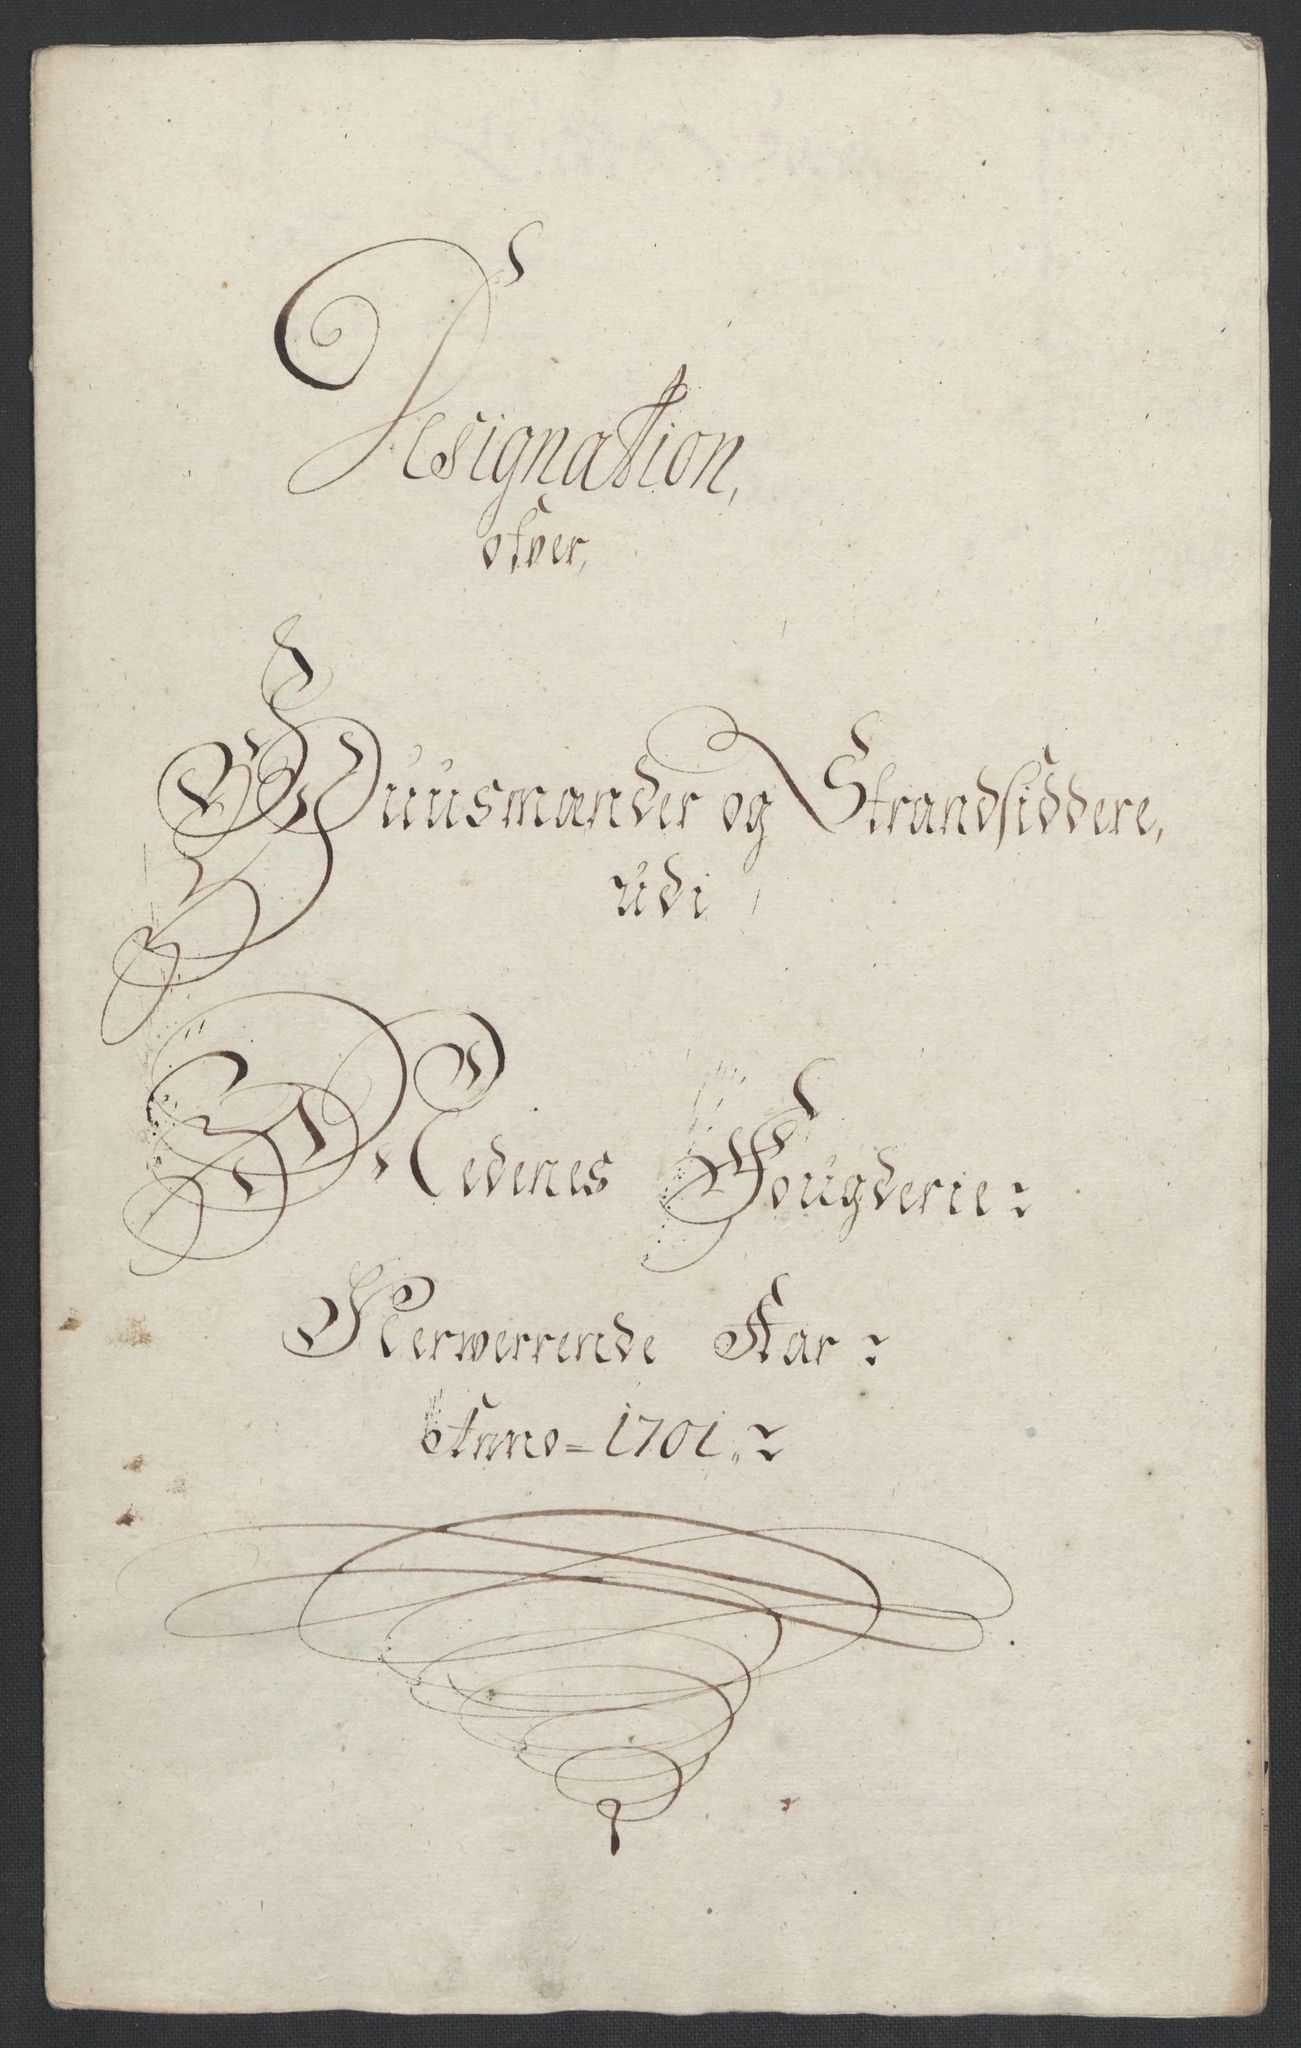 Designation,
ofver,
Huusmænder og Strandsiddere,
udi
Nedenes Fougderie:
Nerwerrende Aar:
Anno = 1701.: